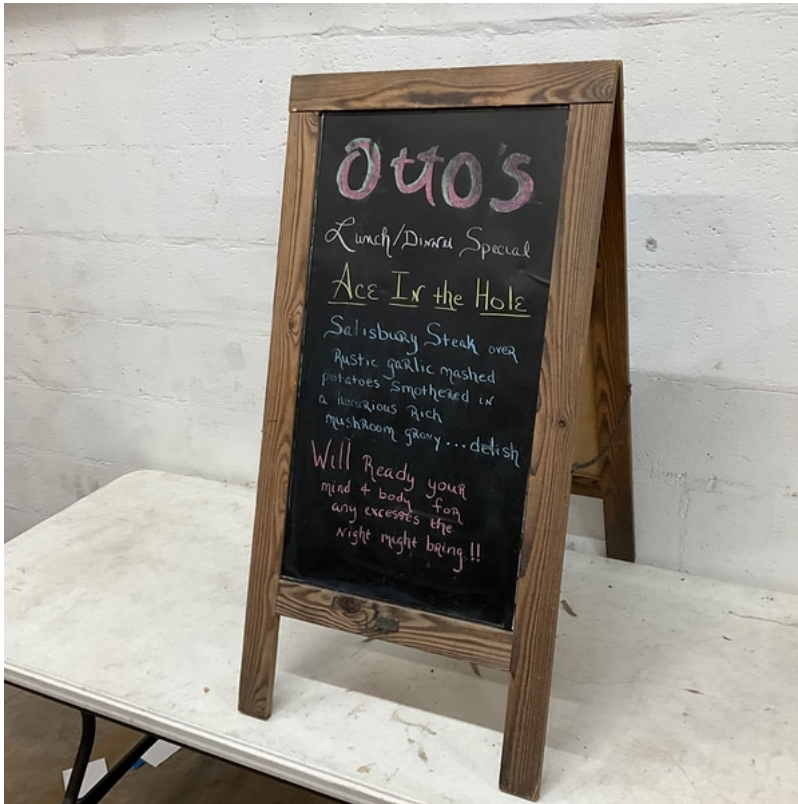 Otto's
Lunch/Dinner Special
Ace In the Hole
Salisbury Steak over
Rustic garlic mashed
potatoes smothered in
a luxurious Rich
mushroom gravy...delish
Will Ready your
mind & body for
any excesses the
night might bring!!